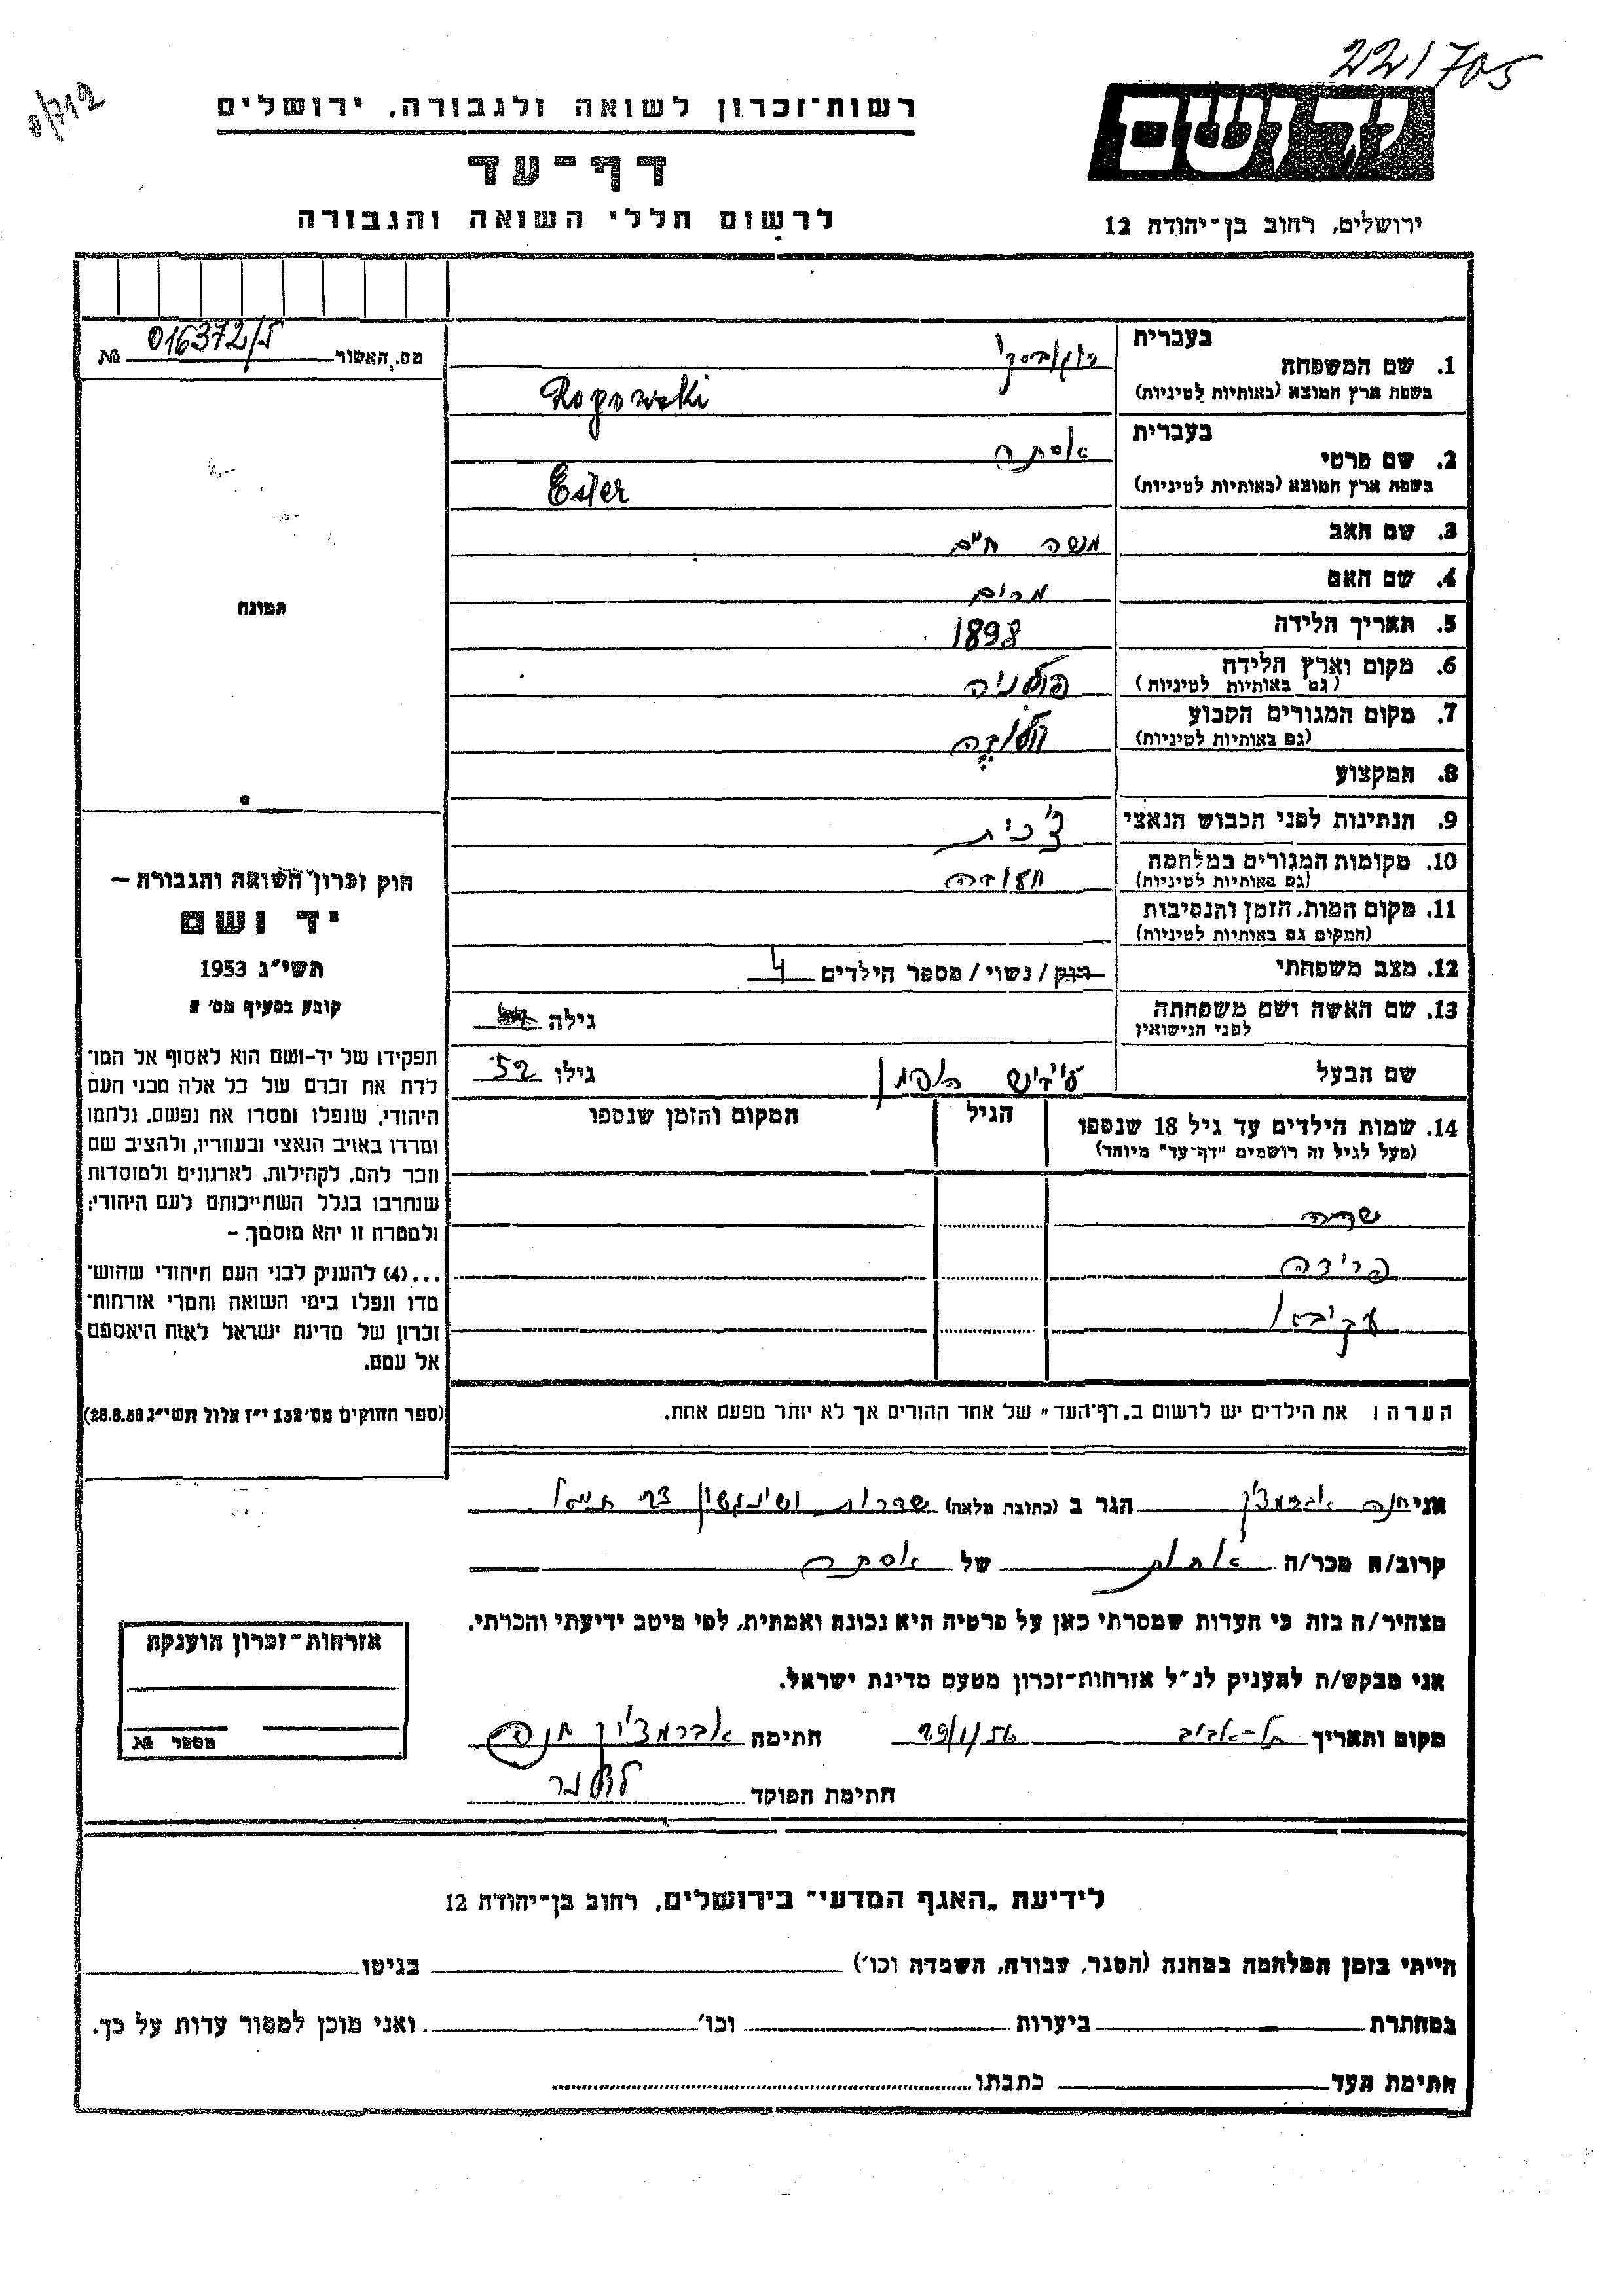 221705
0/712
ידושם
רשות־זכרון לשואה ולגבורה, ירושלים
דף־עד
לרשום חללי השואה והגבורה
ירושלים, רחוב בן־יהודה 12
מס. האשור 016372/ № 
בעברית
1. שם המשפחה
בשפת ארץ המוצא (באותיות לטיניות) Rogowski
בעברית
2. שם פרטי אסתר
בשפת ארץ המוצא (באותיות לטיניות) Ester
3. שם האב מנשה חיים
4. שם האם מרים
5. תאריך הלידה 1898
6. מקום וארץ הלידה פולניה
(גם באותיות לטיניות)
7. מקום המגורים הקבוע
(גם באותיות לטיניות)
8. המקצוע
9. הנתינות לפני הכבוש הנאצי צ'כית
10. מקומות המגורים במלחמה
(גם באותיות לטיניות)
11. מקום המות, הזמן והנסיבות
(המקום גם באותיות לטיניות)
12. מצב משפחתי רוק / נשוי / מספר הילדים 4
13. שם האשה ושם משפחתה
לפני הנישואין
גילה
שם הבעל גילו 52
14. שמות הילדים עד גיל 18 שנספו
(מעל לגיל זה רושמים "דף־עד" מיוחד)
הגיל
המקום והזמן שנספו
שרה
פרידה
עקיבא
הערה: את הילדים יש לרשום ב„דף־העד" של אחד ההורים אך לא יותר מפעם אחת.
תמונה
חוק זכרון השואה והגבורה —
יד ושם
תשי"ג 1953
קובע בסעיף מס' 2
תפקידו של יד-ושם הוא לאסוף אל המו־
לדת את זכרם של כל אלה מבני העם
היהודי, שנפלו ומסרו את נפשם, נלחמו
ומרדו באויב הנאצי ובעוזריו, ולהציב שם
וזכר להם, לקהילות, לארגונים ולמוסדות
שנחרבו בגלל השתייכותם לעם היהודי;
ולמטרה זו יהא מוסמך —
...(4) להעניק לבני העם היהודי שהוש־
מדו ונפלו בימי השואה והמרי אזרחות־
זכרון של מדינת ישראל לאות היאספם
אל עמם.
(ספר החוקים מס' 132 י"ז אלול תשי"ג 28.8.53)
אני חנה אברמצ'יק הגר ב (כתובת מלאה) שדרות וושינגטון
קרוב/ה מכר/ה אחות של אסתר
מצהיר/ה בזה כי העדות שמסרתי כאן על פרטיה היא נכונה ואמתית, לפי מיטב ידיעתי והכרתי.
אני מבקש/ת להעניק לנ"ל אזרחות-זכרון מטעם מדינת ישראל.
מקום ותאריך תל-אביב 29/1/56 חתימה אברמצ'יק חנה
חתימת הפוקד
אזרחות-זכרון הוענקה
מספר №
לידיעת „האגף המדעי" בירושלים, רחוב בן־יהודה 12
הייתי בזמן המלחמה במחנה (הסגר, עבודה, השמדה וכו') בגיטו
במחתרת ביערות וכו' ואני מוכן למסור עדות על כך.
חתימת העד כתבתו